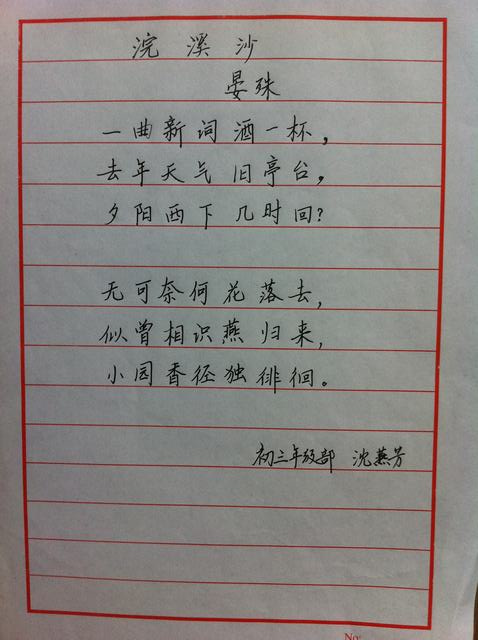 浣溪沙
晏殊
一曲新词酒一杯，
去年天气旧亭台，
夕阳西下几时回？
无可奈何花落去，
似曾相识燕归来，
小园香径独徘徊。
初三年级部 沈燕芳
No: